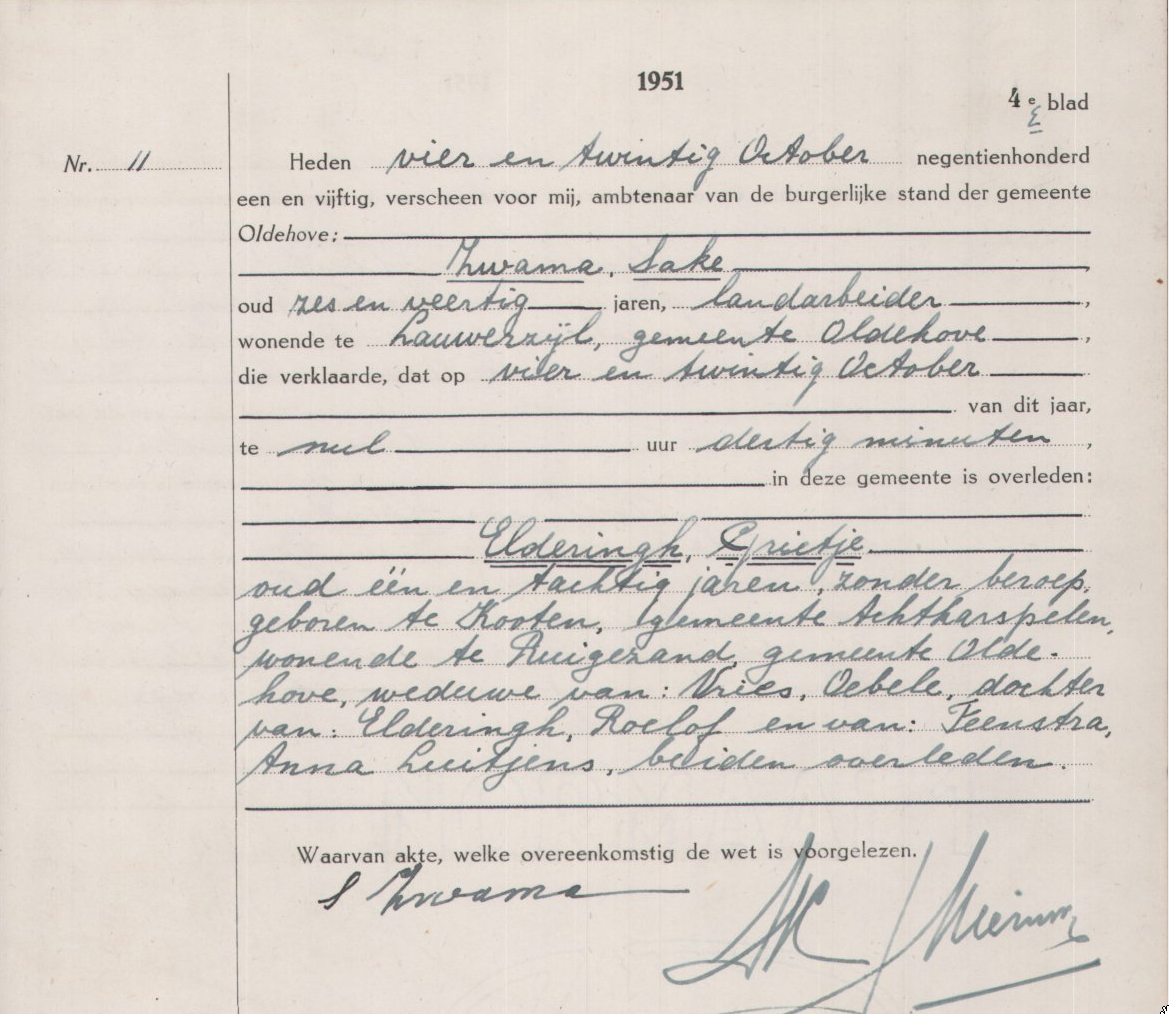 1951
4e blad
Nr. 11 Heden vier en twintig October negentienhonderd
een en vijftig, verscheen voor mij, ambtenaar van de burgerlijke stand der gemeente
Oldehove:
Zwama, Sake
oud zes en veertig jaren, landarbeider,
wonende te Lauwerzijl, gemeente Oldehove,
die verklaarde, dat op vier en twintig October
van dit jaar,
te nul uur dertig minuten,
in deze gemeente is overleden:
Elderingh, Grietje
oud één en tachtig jaren, zonder beroep,
geboren te Kooten, gemeente Achtkarspelen,
wonende te Ruigezand, gemeente Olde-
hove, weduwe van: Vries, Oebele, dochter
van: Elderingh, Roelof en van: Teenstra,
Anna Luitjens, beiden overleden.
Waarvan akte, welke overeenkomstig de wet is voorgelezen.
S Zwama